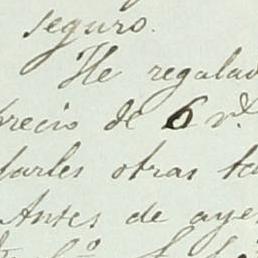 seguro.
He regalad
precio de 6 rs.
darles otras ta
Antes de ayer